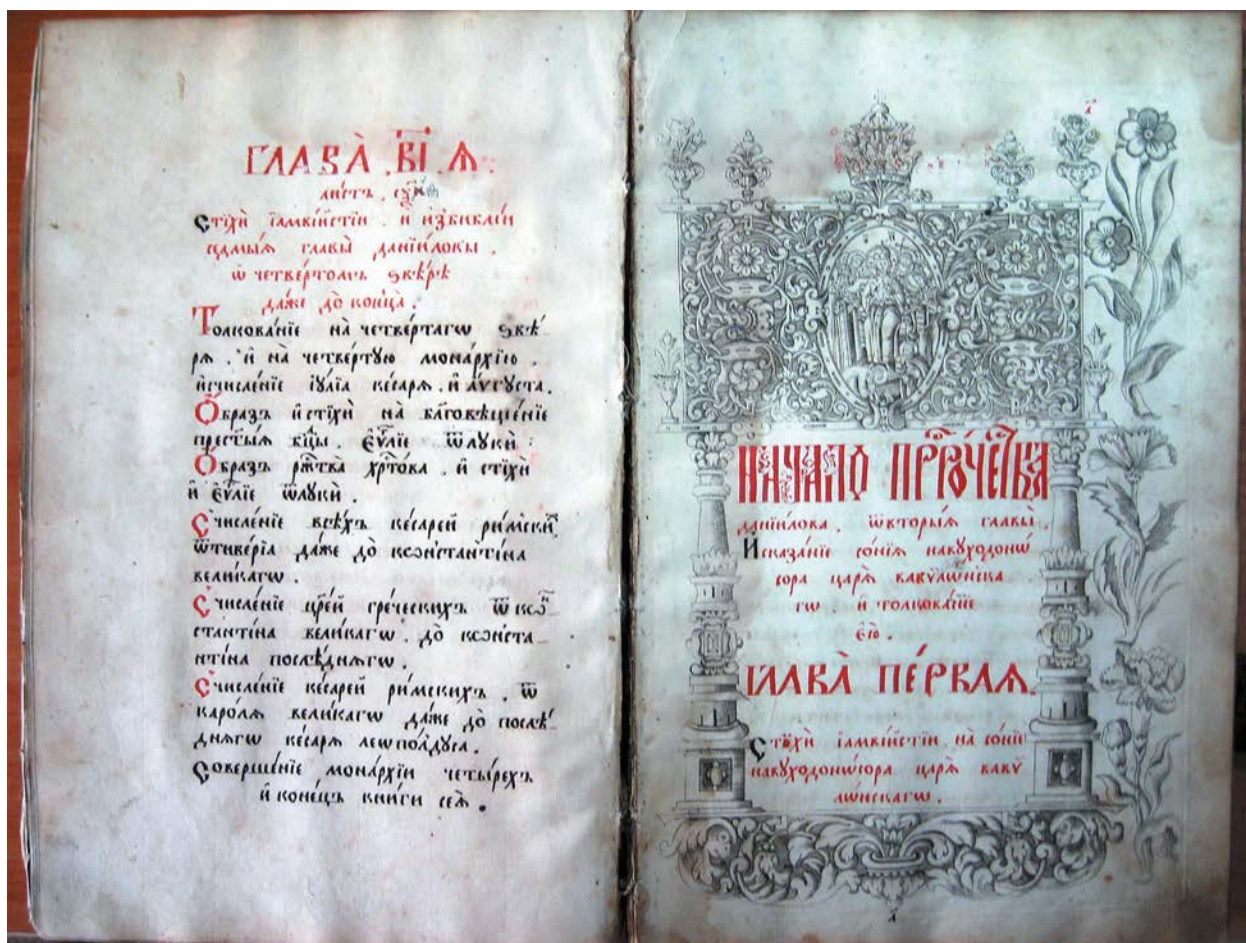 ГЛАВА̀ . В҃І . Ѧ :
ли́стъ .
Стїхѝ їамви́йстїи . и҆ изби́блїи
седмы́ѧ главы̀ данїи́ловы .
ѿ четве́ртомъ ѕвѣ́рѣ
да́же до̀ конца̀ .
Толкова́нїе на̀ четве́ртагѡ ѕвѣ́-
рѧ . и҆ на̀ четве́ртꙋю мона́рхїю .
и҆счисле́нїе їꙋ́лїа ке́сарѧ . и҆ а́ѵгꙋста .
Ѻ҆́бразъ и҆ стїхѝ на̀ бл҃гове́щенїе
прест҃ы́ѧ бц҃ы . є҆ѵ҃лїе ѿлꙋкѝ :
Ѻ҆́бразъ рж҃тва̀ хр҃то́ва . и҆ стїхѝ
и҆ є҆ѵ҃лїе ѿлꙋкѝ .
Счисле́нїе всѣ́хъ ке́сарей ри́мскихъ
ѿтиве́рїа да́же до̀ кѡнстанті́на
вели́кагѡ .
Счисле́нїе цр҃е́й гре́ческихъ ѿ кѡн-
станті́на вели́кагѡ . до̀ кѡнста-
нті́на послѣ́днѧгѡ .
Счисле́нїе ке́сарей ри́мскихъ . ѿ
ка́ролѧ вели́кагѡ да́же до̀ послѣ́-
днѧгѡ ке́сарѧ леѡпо́лдꙋса .
Соверше́нїе мона́рхїи четы́рехъ
и҆ коне́цъ кни́ги сеѧ̀ .
НАЧАЛО ПРР҃О́ЧЕСТВА
данїи́лова . ѿвторы́ѧ главы̀ .
И҆сказа́нїе со́нїѧ навꙋходонѡ́
сора царѧ̀ вавѷлѡ́нска
гѡ и҆ толкова́нїе
є҆гѡ̀ .
ГЛАВА̀ ПЕ́РВАѦ .
Стїхѝ їамви́йстїи . на̀ со́нїе
навꙋходонѡ́сора царѧ̀ вавѷ
лѡ́нскагѡ .